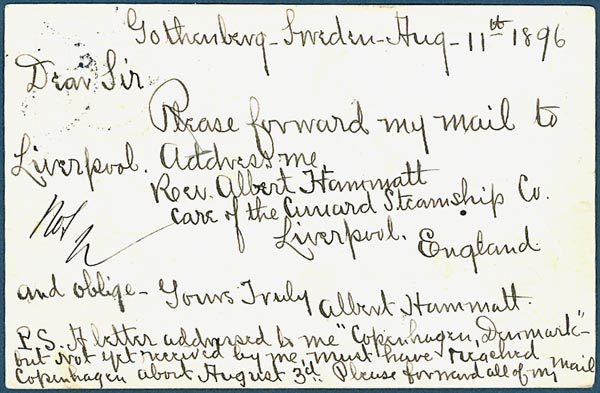 Gothenberg - Sweden - Aug - 11th 1896
Dear Sir
Please forward my mail to
Liverpool. Address me
Rev. Albert Hammatt
care of the Cunard Steamship Co.
Liverpool.
England
and oblige - Yours Truly Albert Hammatt.
P.S. A letter addressed to me "Copenhagen, Denmark" -
but not yet received by me, must have reached
Copenhagen about August 3d. Please forward all of my mail